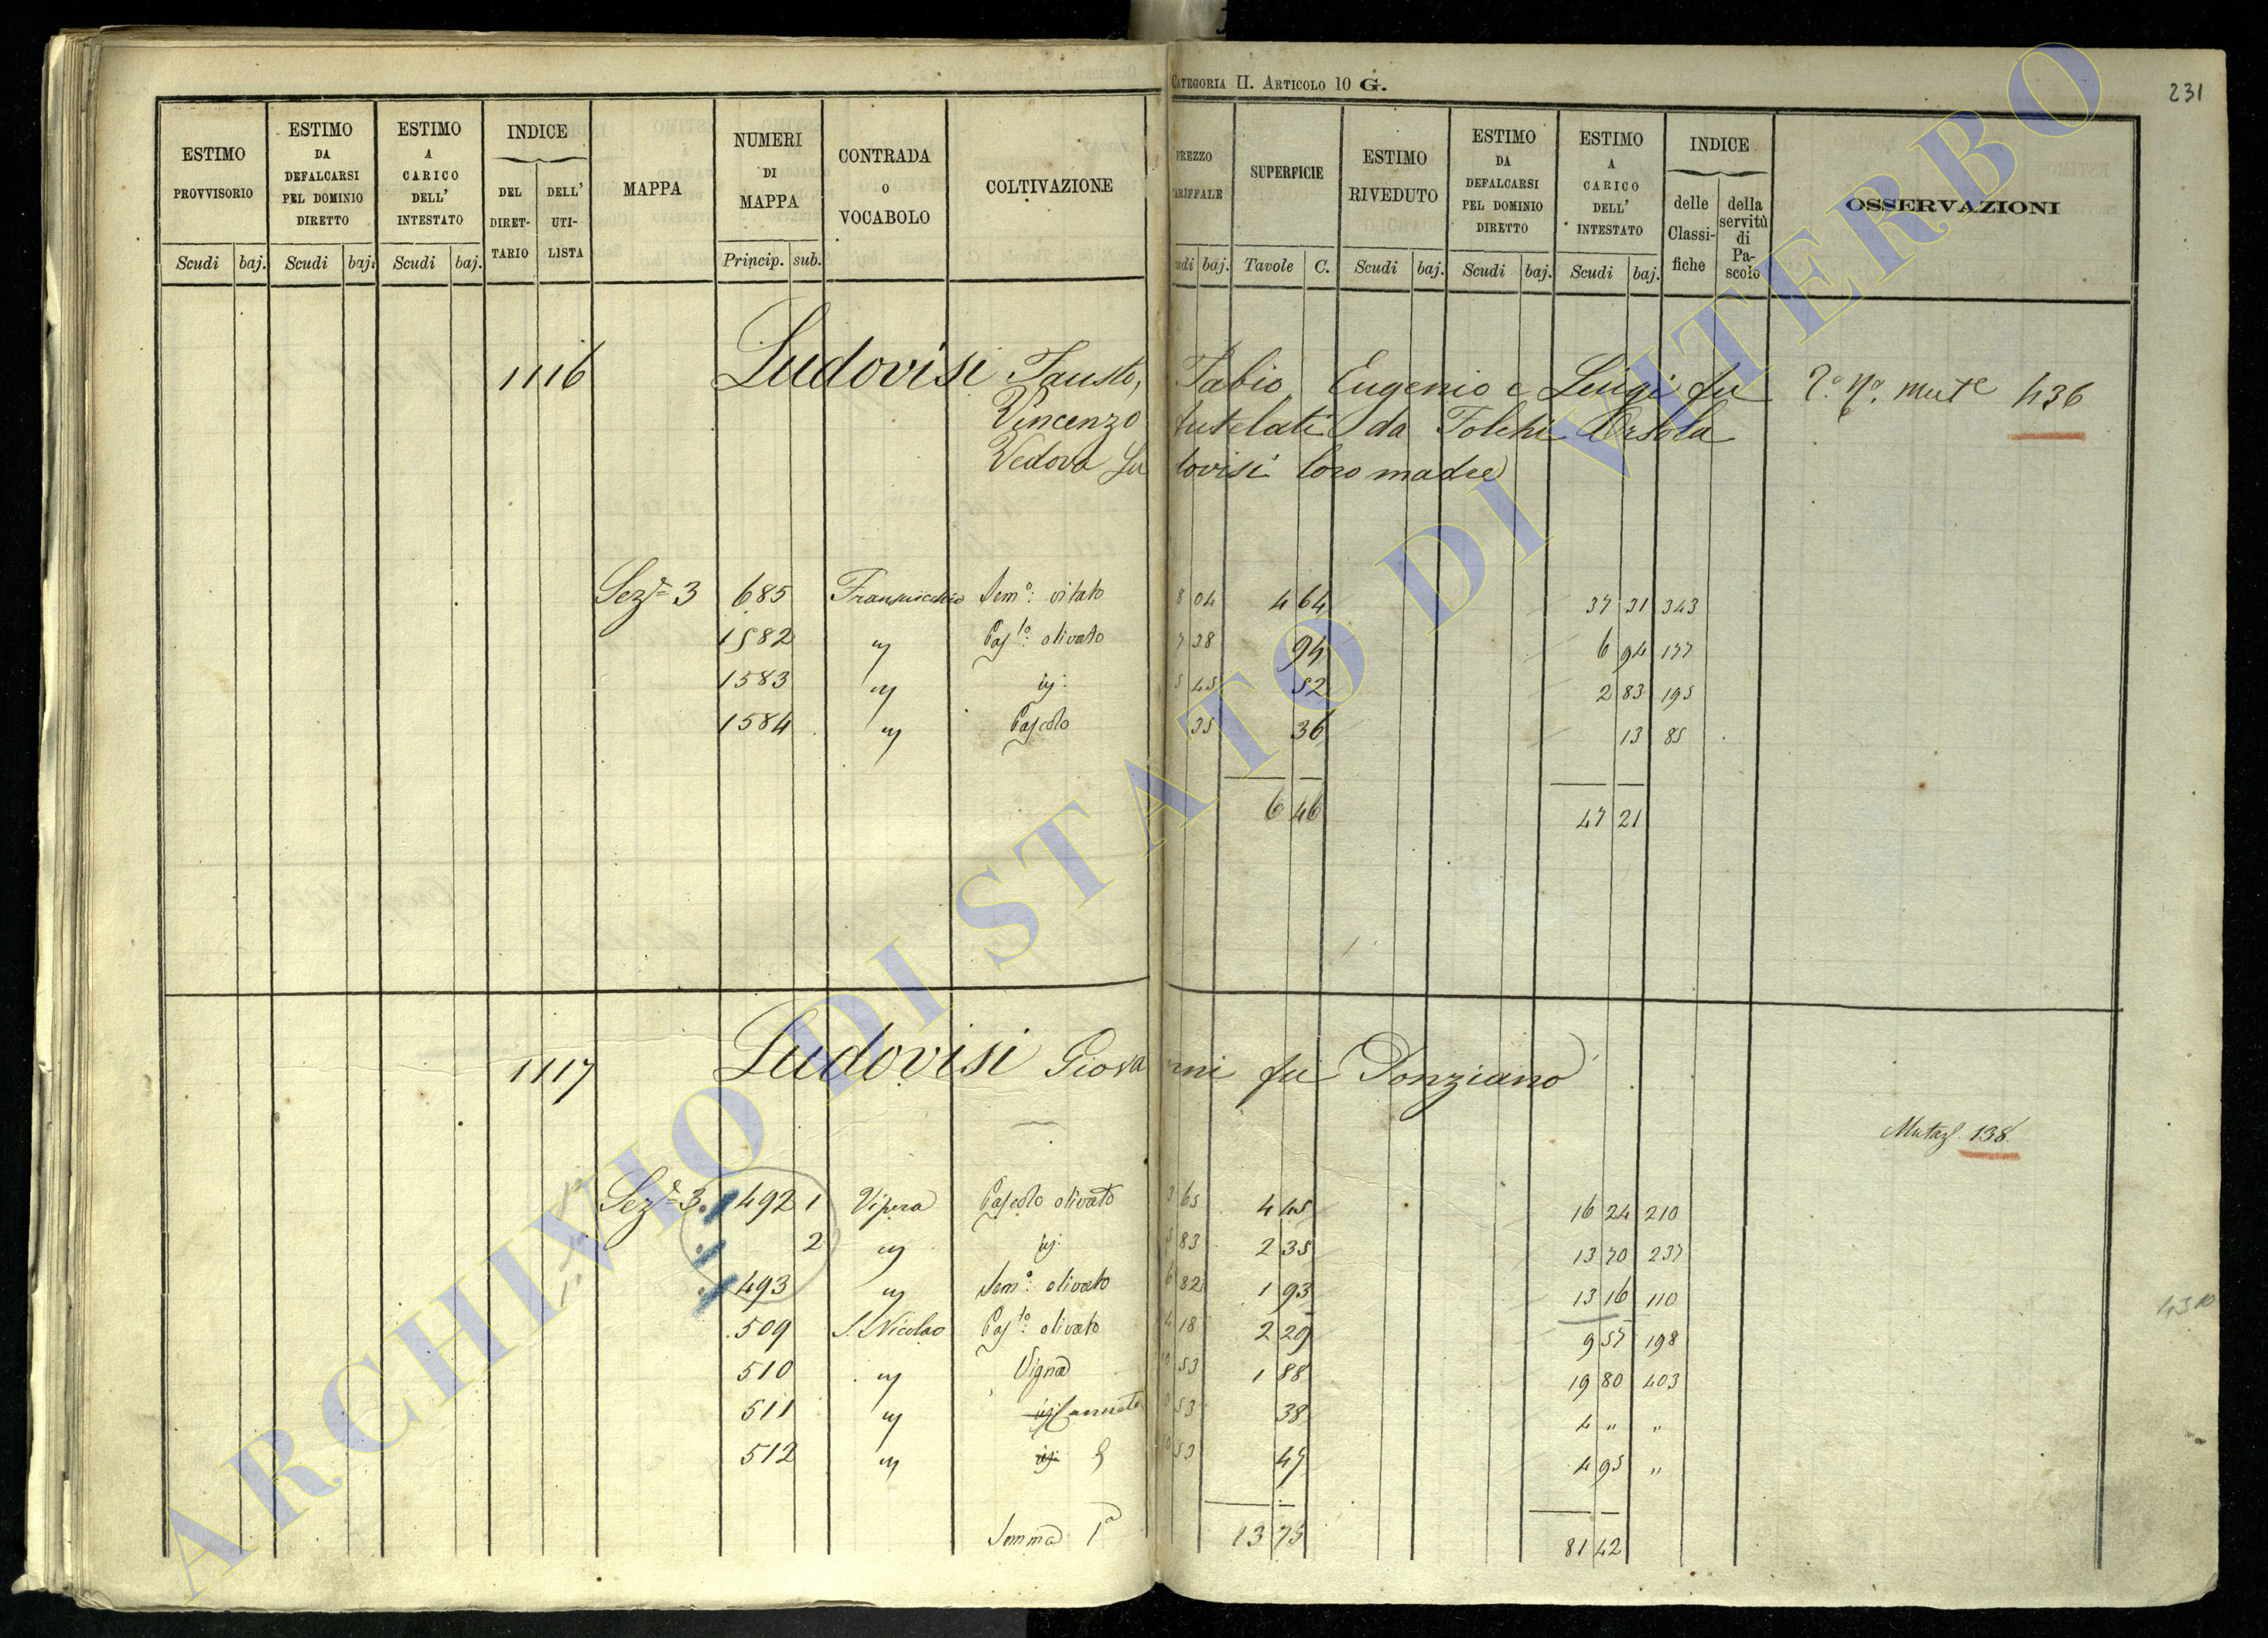 CATEGORIA II. ARTICOLO 10 G.
231
ESTIMO PROVVISORIO
ESTIMO DA DEFALCARSI PEL DOMINIO DIRETTO
ESTIMO A CARICO DELL' INTESTATO
INDICE
DEL DIRET-TARIO
DELL' UTI-LISTA
MAPPA
NUMERI DI MAPPA
CONTRADA o VOCABOLO
COLTIVAZIONE
PREZZO TARIFFALE
SUPERFICIE
ESTIMO RIVEDUTO
ESTIMO DA DEFALCARSI PEL DOMINIO DIRETTO
ESTIMO A CARICO DELL' INTESTATO
INDICE
delle Classi-fiche
della servitù di Pa-scolo
OSSERVAZIONI
Scudi baj. Scudi baj. Scudi baj. Princip. sub. udi baj. Tavole C. Scudi baj. Scudi baj. Scudi baj.
1116 Ludovisi Fausto, Fabio, Eugenio e Luigi fu 436
Vincenzo tutelati da Folchi Orsola
Vedova Ludovisi loro madre
Sez.e 3 685 Sem.o vitato 8 04 4 64 37 31 343
1582 " Pas.to olivato 7 38 94 6 94 177
1583 " id. 5 45 52 2 83 195
1584 " Pascolo 35 36 13 85
6 46 47 21
1117 Ludovisi Giovanni fu Ponziano
Mutaz. 138
Sez.e 3 492 1 Vipera Pascolo olivato 3 65 4 45 16 24 210
2 " id. 5 83 2 35 13 70 237
493 " Sem.o olivato 6 82 1 93 13 16 110
509 S. Nicolao Pas.to olivato 4 18 2 29 9 57 198
510 " Vigna 10 53 1 88 19 80 403
511 " id. Canneto 10 53 38 4 " "
512 " id. 10 53 47 4 95 "
Somma 1a 13 75 81 42
ARCHIVIO DI STATO DI VITERBO